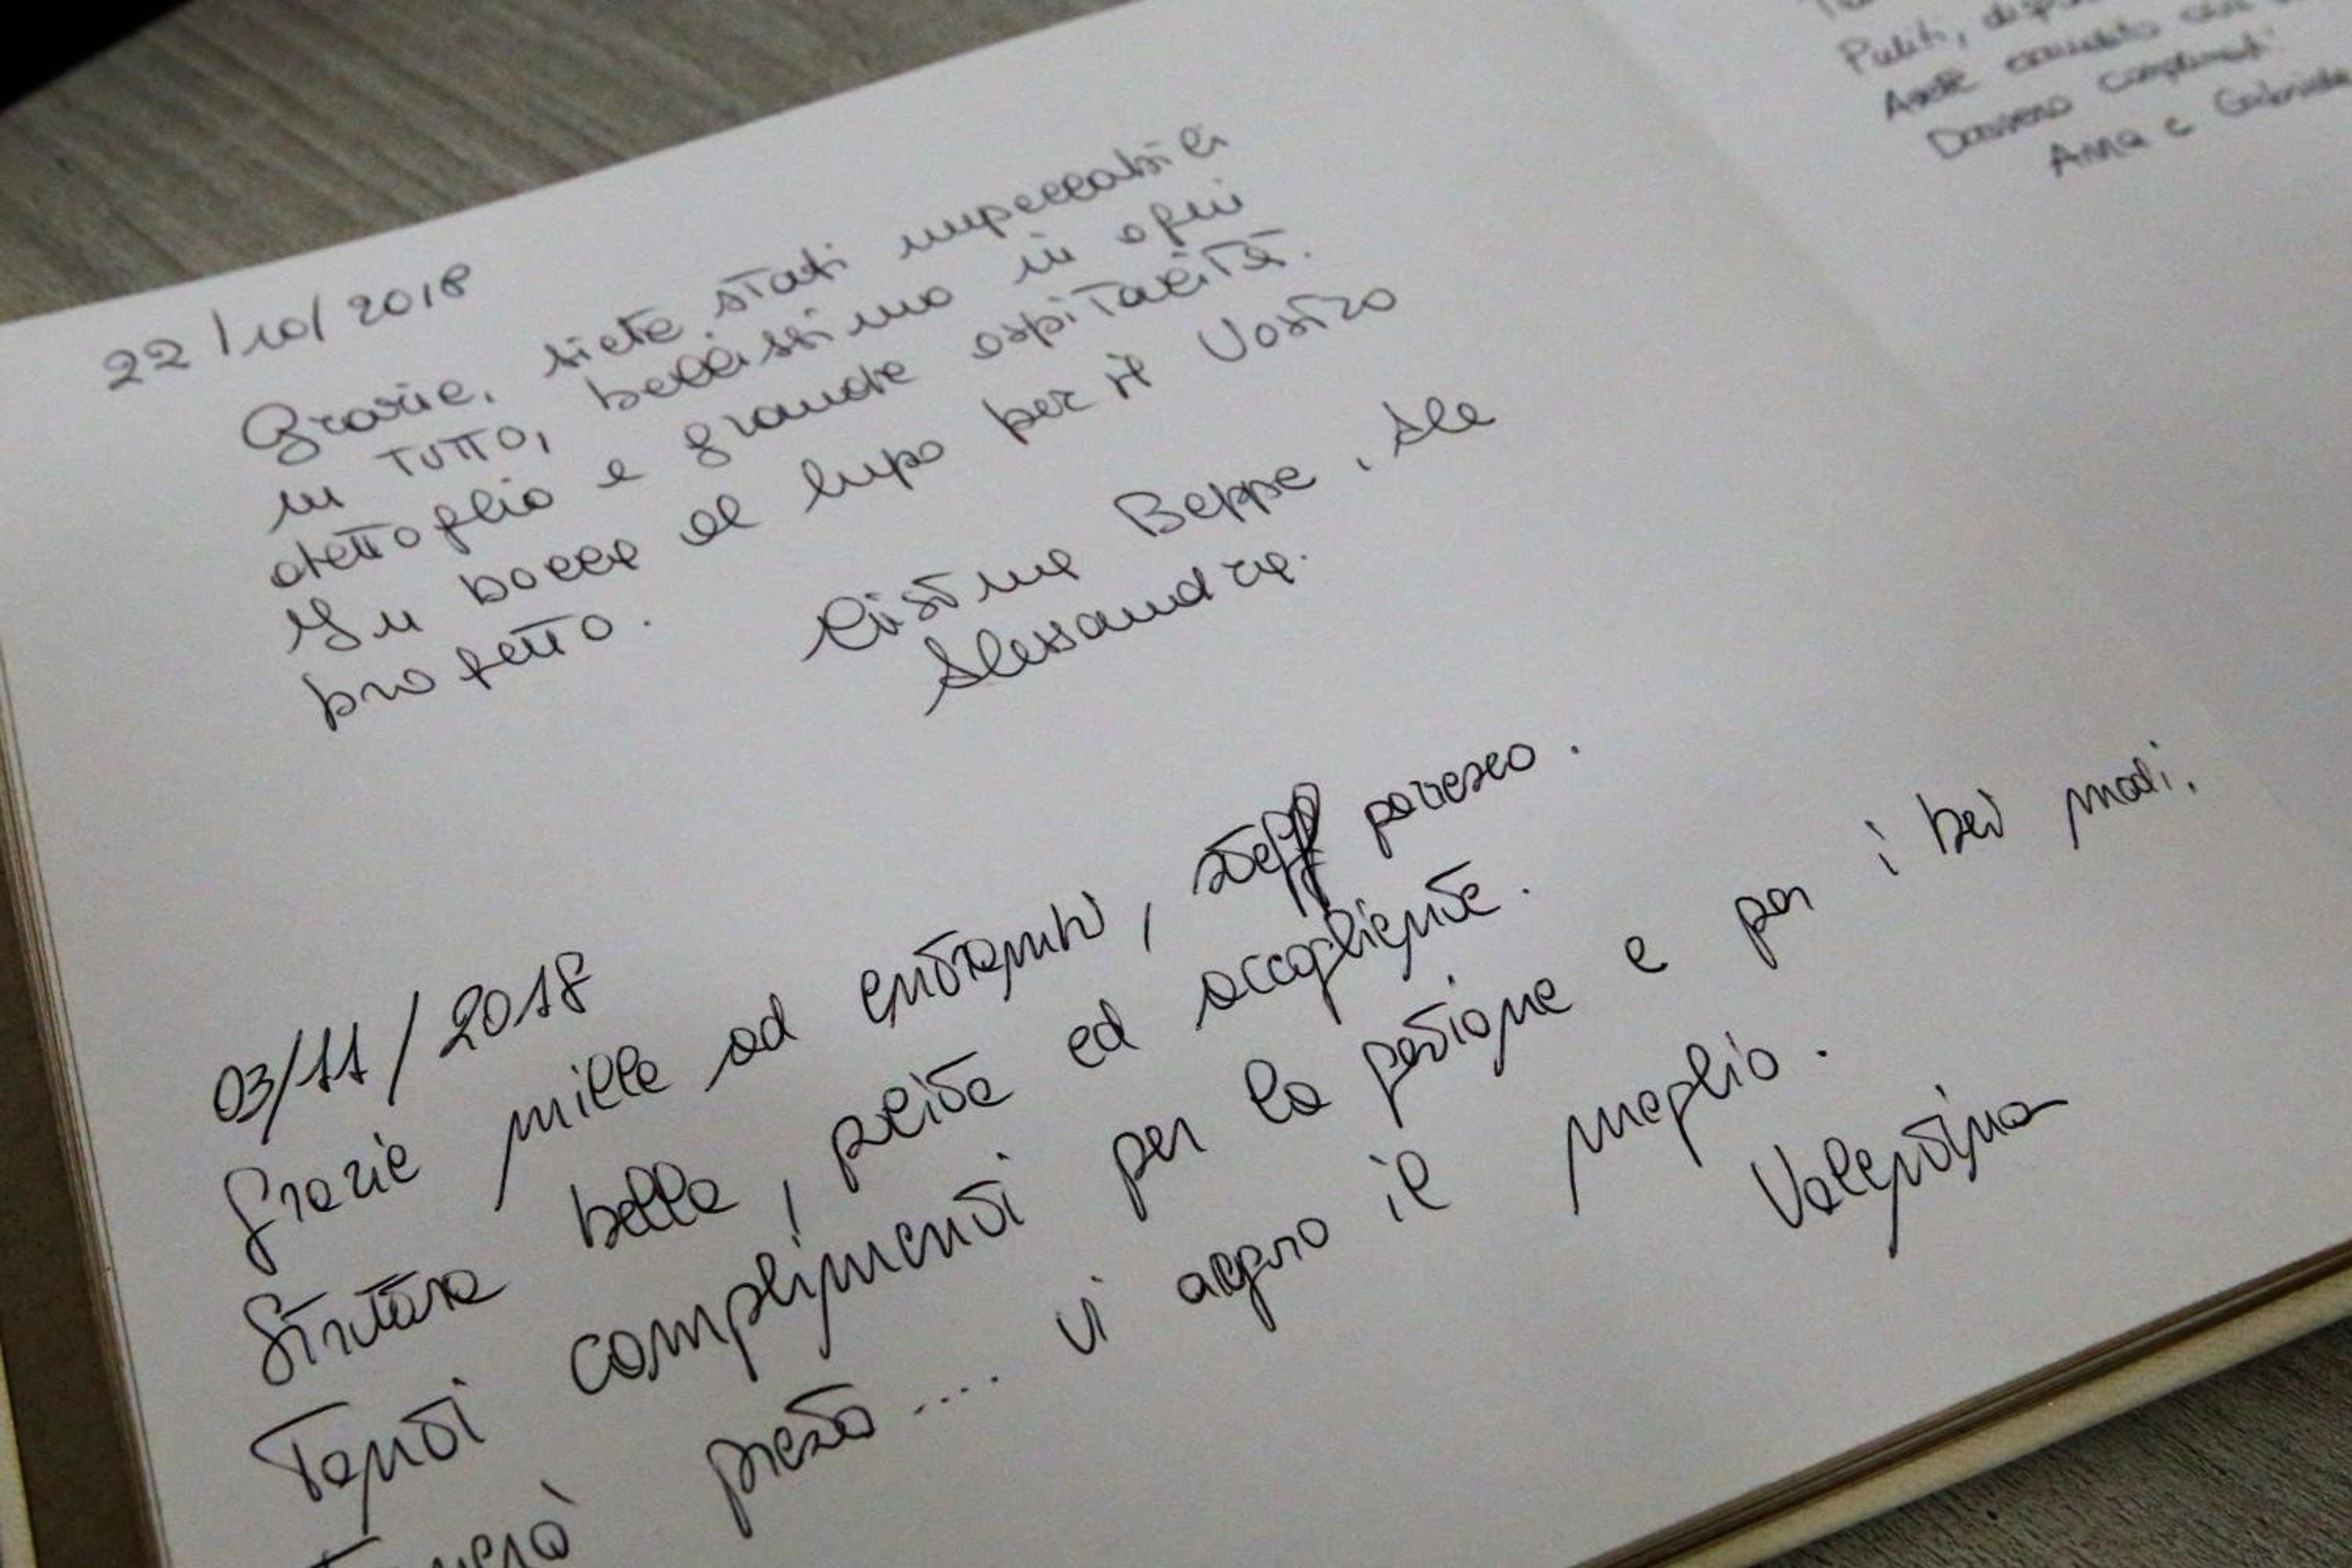 22/10/2018
Grazie, siete stati impeccabili
in tutto, bellissimo in ogni
dettaglio e grande ospitalità.
In bocca al lupo per il Vostro
progetto.
Cristina Beppe, Ale
Alessandra.
03/11/2018
Grazie mille ad entrambi, staff pazzesco.
Struttura bella, pulita ed accogliente.
Tanti complimenti per la gestione e per i bei modi.
Tornerò presto.... vi auguro il meglio.
Valentina
Puliti,
Avete
Davvero complimenti
Anna e Gabriele